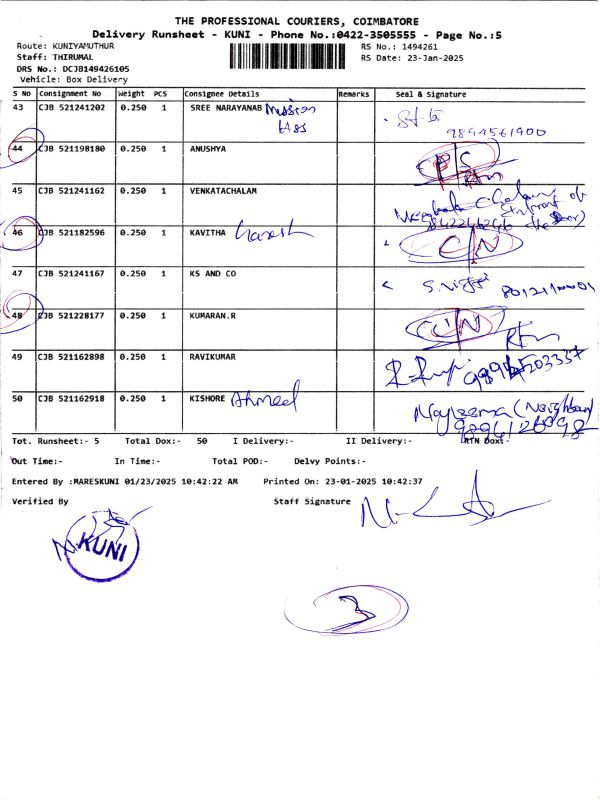 THE PROFESSIONAL COURIERS, COIMBATORE
Delivery Runsheet - KUNI - Phone No.:0422-3505555 - Page No.:5
Route: KUNIYAMUTHUR
RS No.: 1494261
Staff: THIRUMAL
RS Date: 23-Jan-2025
DRS No.: DCJB149426105
Vehicle: Box Delivery
S No Consignment No Weight PCS Consignee Details Remarks Seal & Signature
43 CJB 521241202 0.250 1 SREE NARAYANAB Mission
9894561900
44 CJB 521198180 0.250 1 ANUSHYA
45 CJB 521241162 0.250 1 VENKATACHALAM
46 CJB 521182596 0.250 1 KAVITHA
47 CJB 521241167 0.250 1 KS AND CO
48 CJB 521228177 0.250 1 KUMARAN.R
49 CJB 521162898 0.250 1 RAVIKUMAR
50 CJB 521162918 0.250 1 KISHORE Ahmed
(Neighbour)
Tot. Runsheet:- 5 Total Dox:- 50 I Delivery:- II Delivery:- RTN Dox:-
Out Time:- In Time:- Total POD:- Delvy Points:-
Entered By :MARESKUNI 01/23/2025 10:42:22 AM Printed On: 23-01-2025 10:42:37
Verified By Staff Signature
KUNI
3